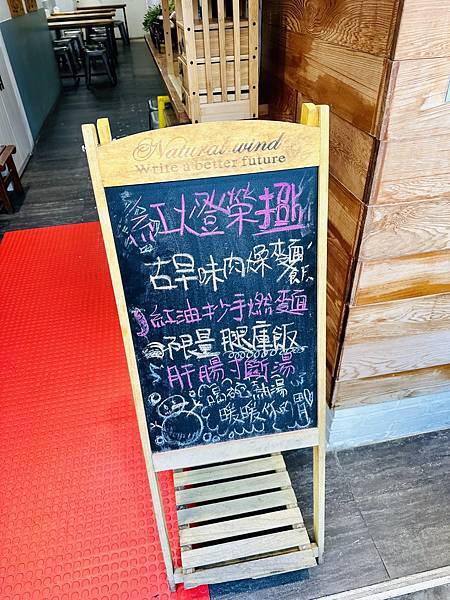 Natural wind
Write a better future
紅燈榮招
古早味肉燥麵飯
紅油抄手燃麵
限量腿庫飯
肝腸寸斷湯
喝碗熱湯
暖暖你的胃